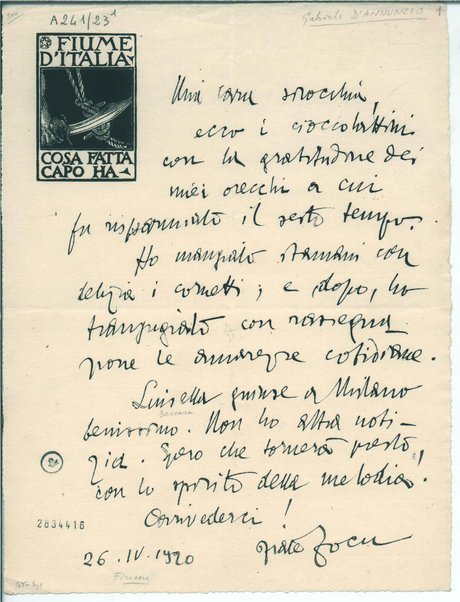 A241/23¹
Gabriele D'ANNUNZIO
1
FIUME
D'ITALIA
COSA FATTA
CAPO HA
Mia cara sirocchia,
ecco i cioccolattini
con la gratitudine dei
miei orecchi a cui
fu risparmiato il sesto tempo.
Ho mangiato stamani con
delizia i cornetti; e dopo, ho
trangugiato con rassegna
zione le amarezze cotidiane.
Luisella giunse a Milano
Baccara
benissimo. Non ho altra noti-
zia. Spero che tornerà presto,
con lo spirito della melodia.
Arrivederci!
2834416
26. IV. 1920
frate
Fiume